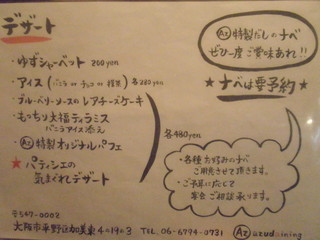 デザート
・ゆずシャーベット 200yen
・アイス（バニラ or チョコ or 抹茶）各280yen
・ブルーベリーソースのレアチーズケーキ
・もっちり大福ティラミス
バニラアイス添え
・Az 特製オリジナルパフェ
★パティシエの
気まぐれデザート
各480yen
Az 特製だしのナベ
ぜひ一度ご賞味あれ!!
★ナベは要予約★
・各種お好みのナベ
ご用意させて頂きます。
・ご予算に応じて
宴会ご相談承ります。
〒547-0002
大阪市平野区加美東4の19の3 TEL 06-6794-0731 Az azudining